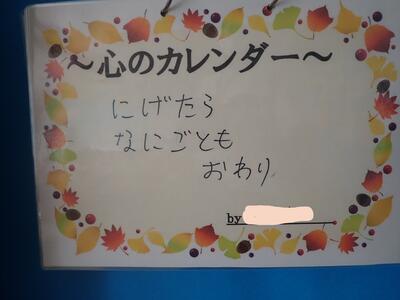 〜心のカレンダー〜
にげたら
なにごとも
おわり
by